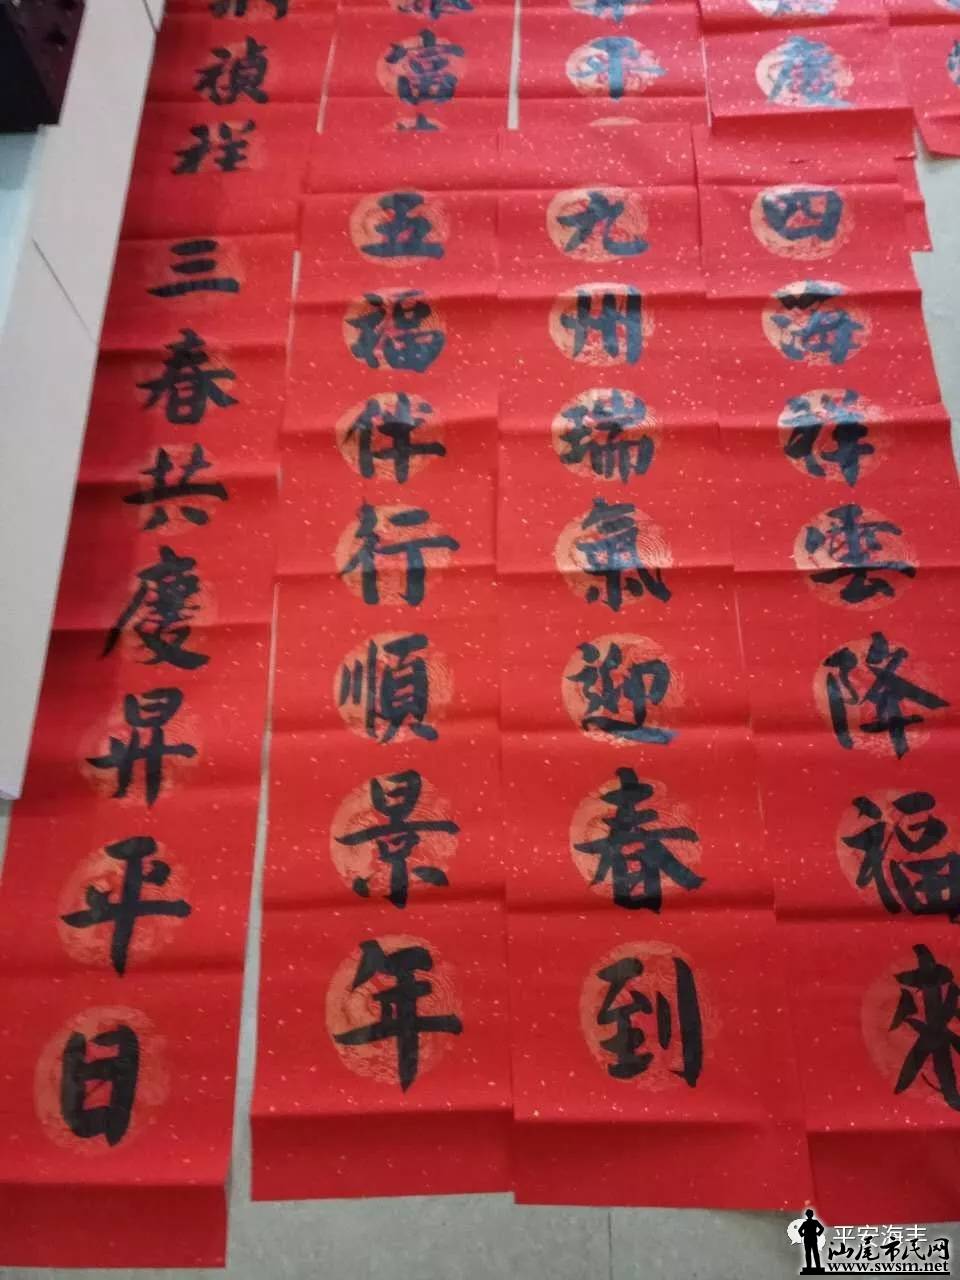 四海祥雲降福來
九州瑞氣迎春到
五福伴行順景年
三春共慶昇平日
慶
平
富
禎祥
平安海丰
汕尾市民网
www.swsm.net